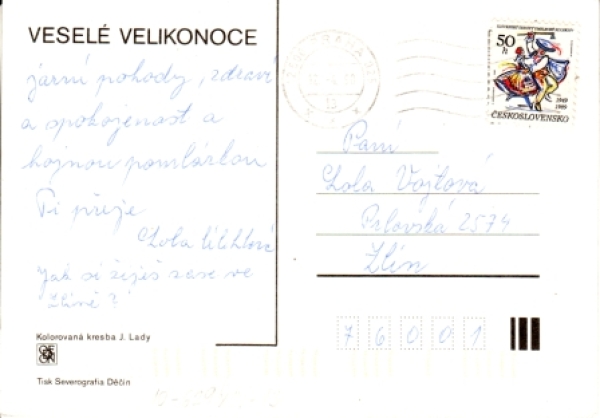 VESELÉ VELIKONOCE
jarní pohody, zdraví
a spokojenost a
hojnou pomlázkou
Ti přeje
Lola
Jak si žiješ zase ve
Zlíně?
Kolorovaná kresba J. Lady
Tisk Severografia Děčín
PRAHA
50 h
1949
1989
ČESKOSLOVENSKO
Paní
Lola Vojtová
2574
Zlín
76001